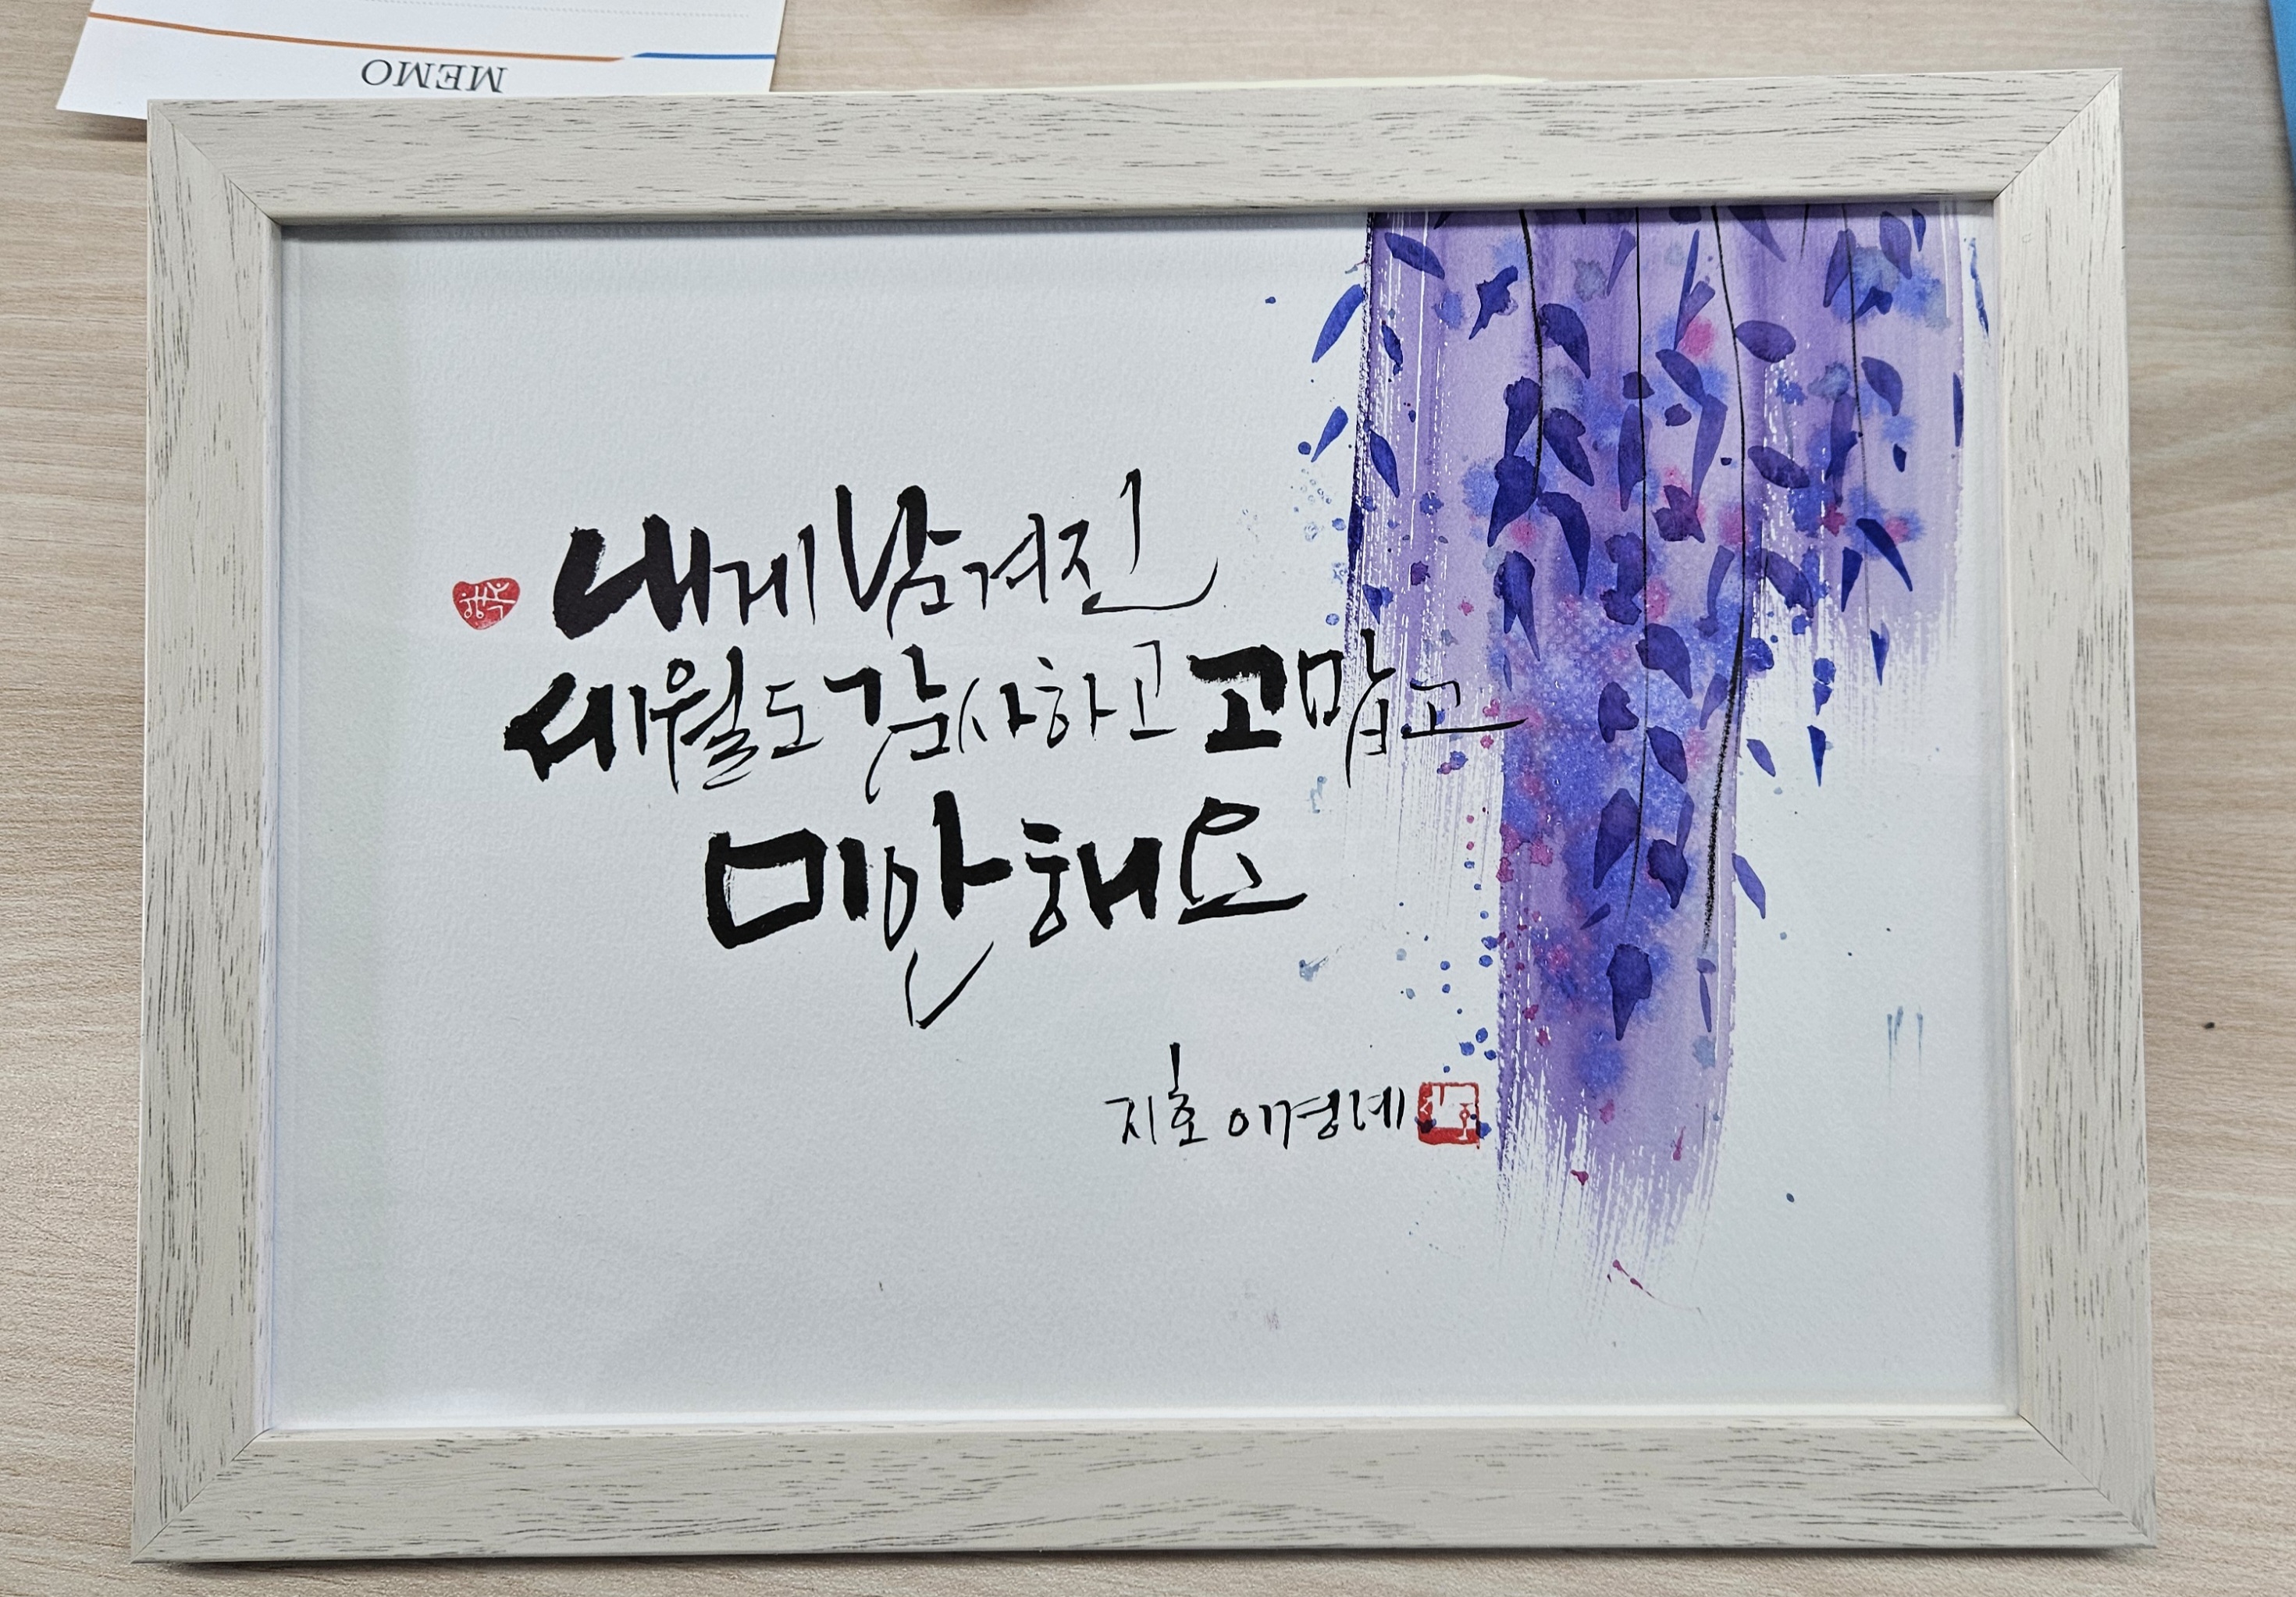 MEMO
내게 남겨진
세월도 감사하고 고맙고
미안해요
지호 이경례